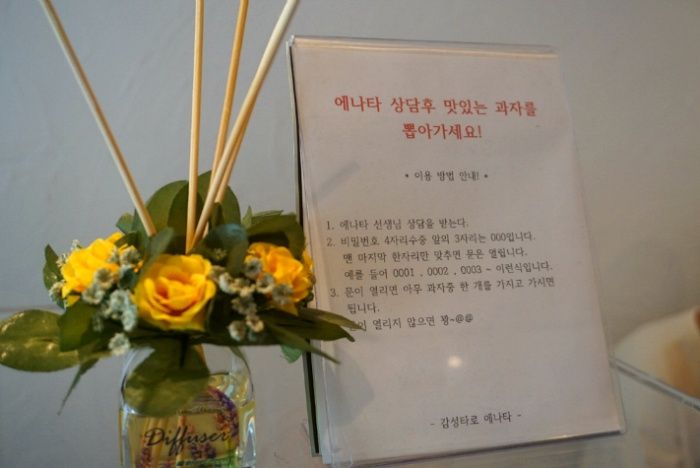 에나타 상담후 맛있는 과자를
뽑아가세요!
* 이용 방법 안내! *
1. 에나타 선생님 상담을 받는다.
2. 비밀번호 4자리수중 앞의 3자리는 000입니다.
맨 마지막 한자리만 맞추면 문은 열립니다.
예를 들어 0001 . 0002 . 0003 ~ 이런식입니다.
3. 문이 열리면 아무 과자중 한 개를 가지고 가시면
됩니다.
열리지 않으면 꽝~@@
- 감성타로 에나타 -
Diffuser